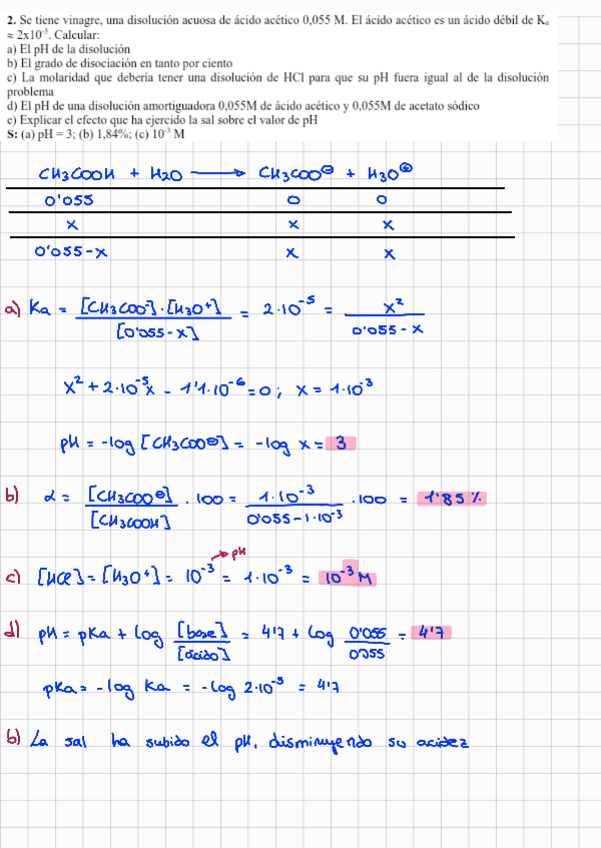 2. Se tiene vinagre, una disolución acuosa de ácido acético 0,055 M. El ácido acético es un ácido débil de Kₐ
≈ 2x10⁻⁵. Calcular:
a) El pH de la disolución
b) El grado de disociación en tanto por ciento
c) La molaridad que debería tener una disolución de HCl para que su pH fuera igual al de la disolución
problema
d) El pH de una disolución amortiguadora 0,055M de ácido acético y 0,055M de acetato sódico
e) Explicar el efecto que ha ejercido la sal sobre el valor de pH
S: (a) pH = 3; (b) 1,84%; (c) 10⁻³ M
CH3COOH + H2O ⟶ CH3COO⊖ + H3O⊕
0'055 0 0
x x x
0'055-x x x
a) Ka = [CH3COO⁻]·[H3O⁺] / [0'055-x] = 2·10⁻⁵ = x² / 0'055-x
x² + 2·10⁻⁵x - 1'1·10⁻⁶ = 0; x = 1·10⁻³
pH = -log [CH3COO⊖] = -log x = 3
b) α = [CH3COO⊖] / [CH3COOH] · 100 = 1·10⁻³ / 0'055-1·10⁻³ · 100 = 1'85 %
→ pH
c) [HCl] = [H3O⁺] = 10⁻³ = 1·10⁻³ = 10⁻³ M
d) pH = pKa + log [base] / [ácido] = 4'7 + log 0'055 / 0'055 = 4'7
pKa = -log Ka = -log 2·10⁻⁵ = 4'7
b) La sal ha subido el pH, disminuyendo su acidez